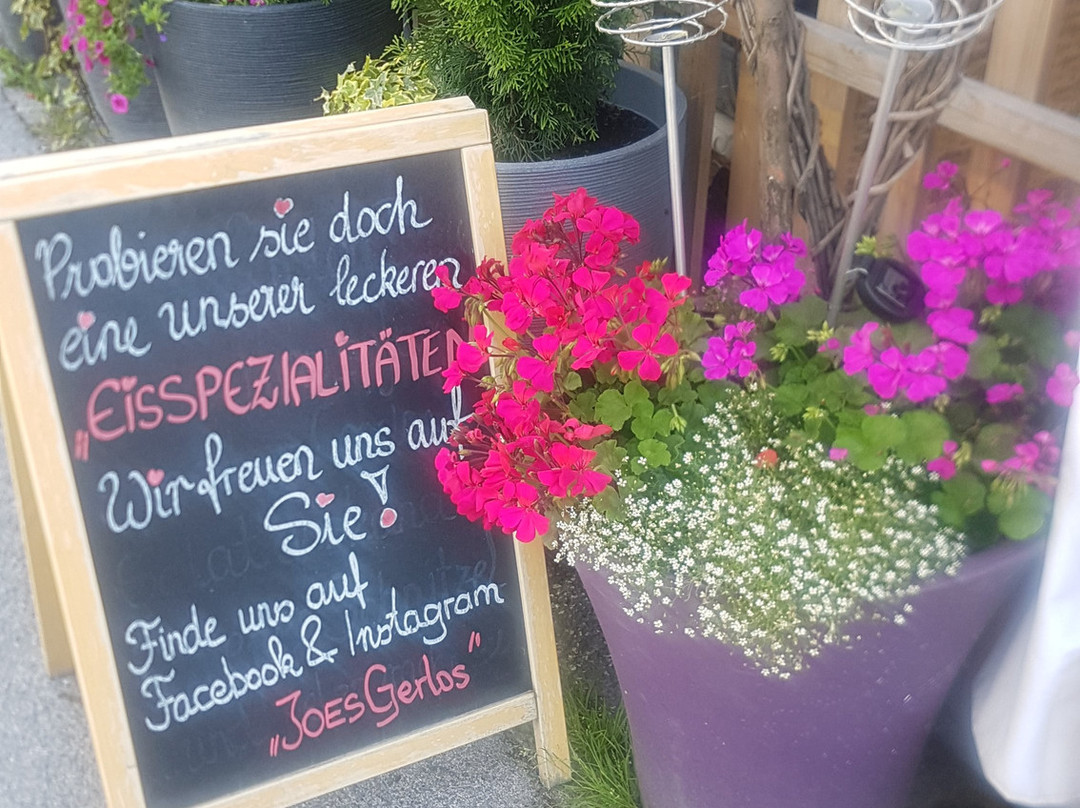 Probieren sie doch
eine unserer leckeren
„EISSPEZIALITÄTEN
Wir freuen uns auf
Sie!
Finde uns auf
Facebook & Instagram
„JOESGerlos"